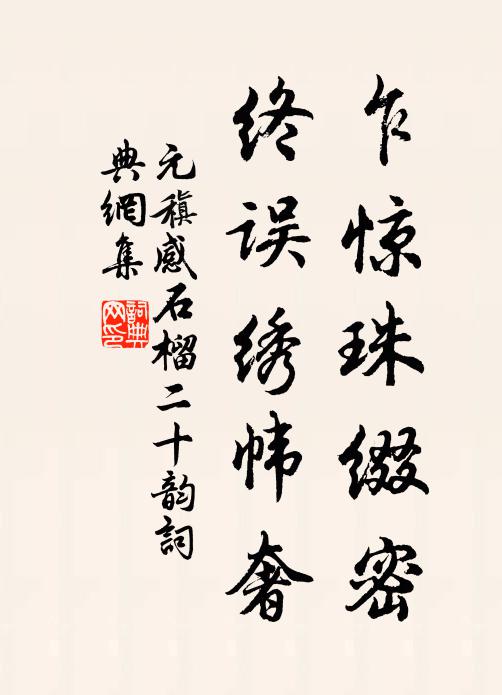 乍惊珠缀密
终误绣帏奢
元稹感石榴二十韵詞
典網集
詞典网印